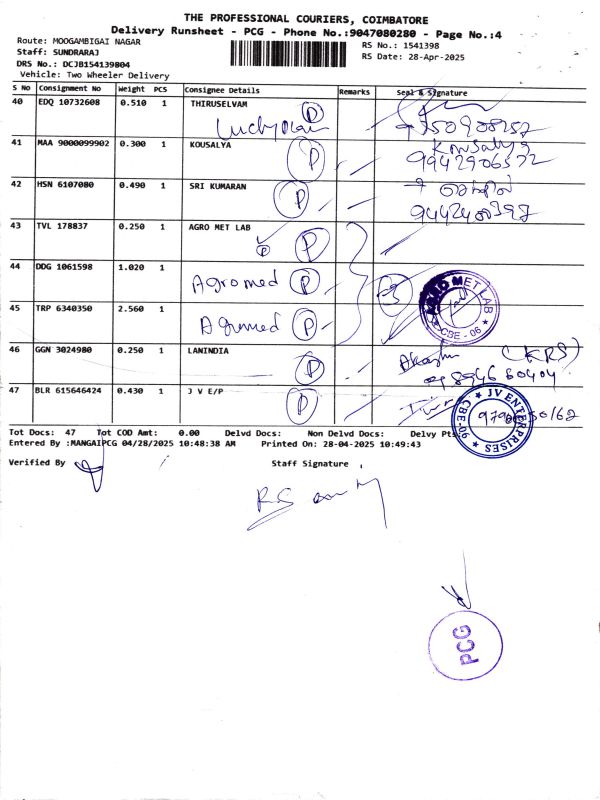 THE PROFESSIONAL COURIERS, COIMBATORE
Delivery Runsheet - PCG - Phone No.:9047080280 - Page No.:4
Route: MOOGAMBIGAI NAGAR
RS No.: 1541398
Staff: SUNDRARAJ
RS Date: 28-Apr-2025
DRS No.: DCJB154139804
Vehicle: Two Wheeler Delivery
S No Consignment No Weight PCS Consignee Details Remarks Seal & Signature
40 EDQ 10732608 0.510 1 THIRUSELVAM P
41 MAA 9000099902 0.300 1 KOUSALYA P Kousalya
9942906572
42 HSN 6107080 0.490 1 SRI KUMARAN P
43 TVL 178837 0.250 1 AGRO MET LAB P
P
44 DDG 1061598 1.020 1 Agromed P 3 MET LAB CBE - 06
45 TRP 6340350 2.560 1 Agromed P
46 GGN 3024980 0.250 1 LANINDIA P (KRS)
47 BLR 615646424 0.430 1 J V E/P P JV ENTERPRISES CBE-90
Tot Docs: 47 Tot COD Amt: 0.00 Delvd Docs: Non Delvd Docs: Delvy Pts:
Entered By :MANGAIPCG 04/28/2025 10:48:38 AM Printed On: 28-04-2025 10:49:43
Verified By Staff Signature
RS
PCG